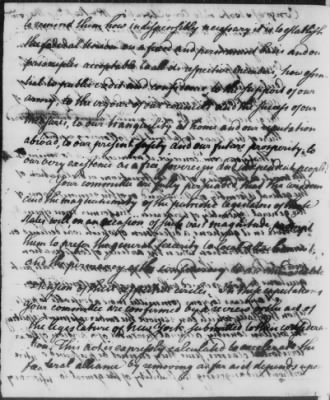 to remind them how indispensably necessary it is to establish
the federal union on a fixed and permanent basis and on
principles acceptable to all its respective members, how essen
tial to public credit and confidence, to the support of our
army, to the vigor of our councils and the success of our
measures, to our tranquility at home and our reputation
abroad, to our present safety and our future prosperity, to
our very existence as a free sovereign and independent people;
Your committee are fully persuaded that the wisdom
and the magnanimity of the patriotic legislators of these
states will on an occasion of such vast magnitude
them to prefer the general security to local
and the permanency of the confederacy to
Your committee are confirmed by a recent order act of
the legislature of New York submitted to their considera
tion. This act is expressly calculated to accelerate this
foederal alliance by removing as far as it depends upon